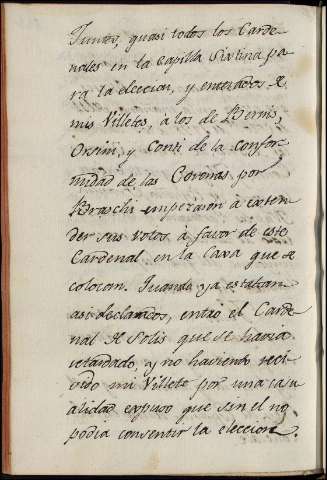 Juntos, quasi todos los Carde-
nales en la Capilla Sixtina pa-
ra la eleccion, y enterados de
mis Villetes, a los de Bernis,
Orsini, y Conti de la confor-
midad de las Coronas por
Braschi empezaron à exten-
der sus votos à favor de este
Cardenal en la Caxa que se
colocan. Quando ya estaban
asi declarados, entrò el Carde-
nal de Solis que se havia
retardado, y no haviendo reci-
vido mi Villete por una casu-
alidad expuso que sin el no
podia consentir la eleccion.